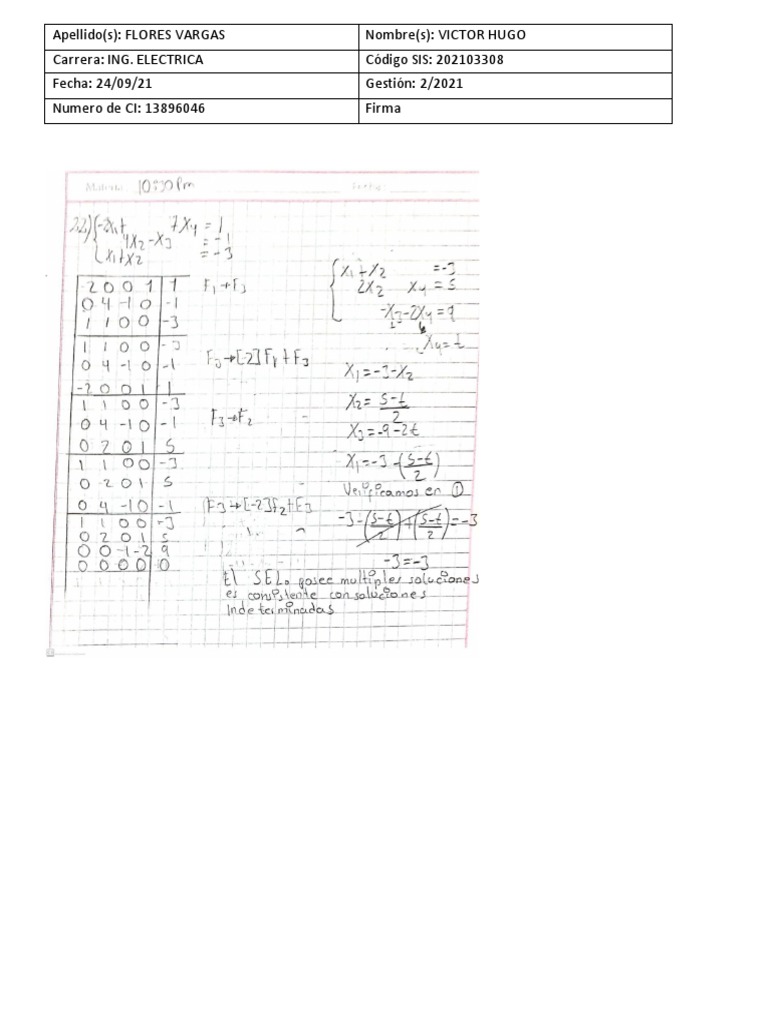 Apellido(s): FLORES VARGAS
Nombre(s): VICTOR HUGO
Carrera: ING. ELECTRICA
Código SIS: 202103308
Fecha: 24/09/21
Gestión: 2/2021
Numero de CI: 13896046
Firma
-2x1+ 7X4 = 1
4x2-x3 = -1
x1+x2 = -3
-2 0 0 1 1
0 4 -1 0 -1
1 1 0 0 -3
F1→F3
1 1 0 0 -3
0 4 -1 0 -1
-2 0 0 1 1
F3→[-2]F1+F3
1 1 0 0 -3
0 4 -1 0 -1
0 2 0 1 5
F3→F2
1 1 0 0 -3
0 2 0 1 5
0 4 -1 0 -1
F3→[-2]F2+F3
1 1 0 0 -3
0 2 0 1 5
0 0 -1 -2 9
0 0 0 0 0
X1+X2 =-3
2X2 X4 = 5
-X3-2X4=9
X4=t
X1=-3-X2
X2= 5-t/2
X3=-9-2t
X1=-3-(5-t/2)
Verificamos en ①
-3-(5-t/2)+(5-t/2)=-3
-3=-3
El SEL. posee multiples soluciones
es consistente con soluciones
Indeterminadas